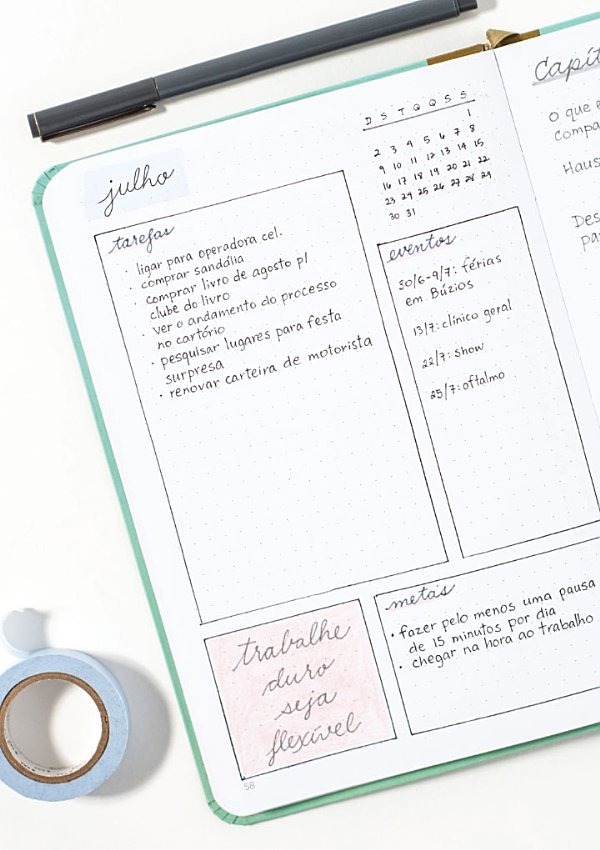 julho
D S T Q Q S S
1
2 3 4 5 6 7 8
9 10 11 12 13 14 15
16 17 18 19 20 21 22
23 24 25 26 27 28 29
30 31
tarefas
· ligar para operadora cel.
· comprar sandália
· comprar livro de agosto p/
clube do livro
· ver o andamento do processo
no cartório
· pesquisar lugares para festa
surpresa
· renovar carteira de motorista
eventos
30/6-9/7: férias
em Búzios
13/7: clínico geral
22/7: show
25/7: oftalmo
metas
· fazer pelo menos uma pausa
de 15 minutos por dia
· chegar na hora ao trabalho
trabalhe
duro
seja
flexível
58
Capít
O que
compa
Haus
Des
pa